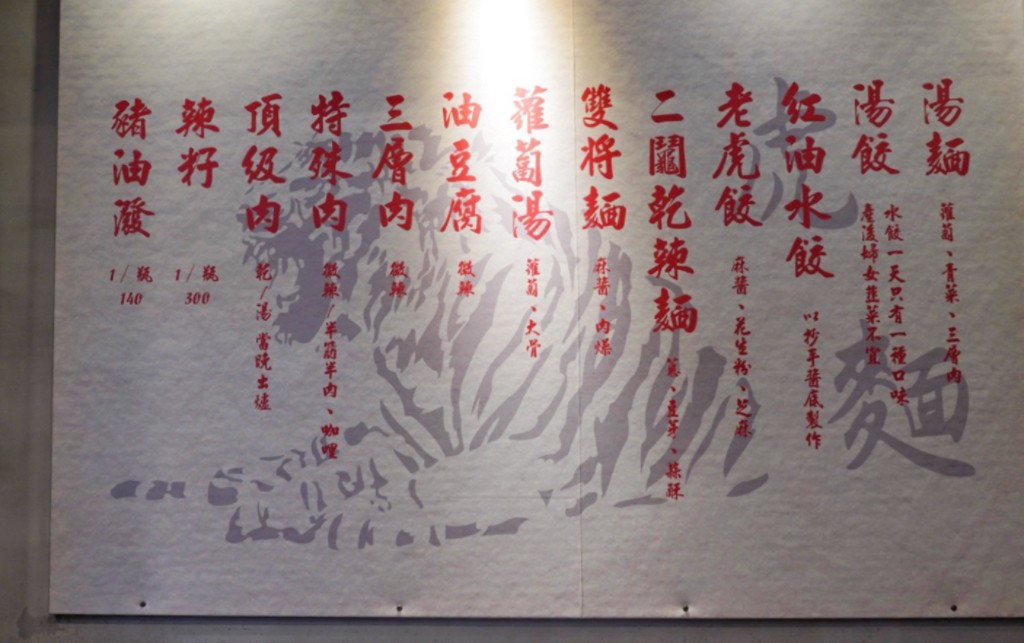 湯麵
蘿蔔、青菜、三層肉
湯餃
水餃一天只有一種口味
產後婦女韭菜不宜
紅油水餃
以抄手醬底製作
老虎餃
麻醬、花生粉、芝麻
二鬮乾辣麵
蔥、豆芽、蒜酥
雙将麵
麻醬、肉燥
蘿蔔湯
蘿蔔、大骨
油豆腐
微辣
三層肉
微辣
特殊肉
微辣/半筋半肉、咖哩
頂级肉
乾/湯 當晚出爐
辣籽
1/瓶
300
豬油潑
1/瓶
140
虎
麵